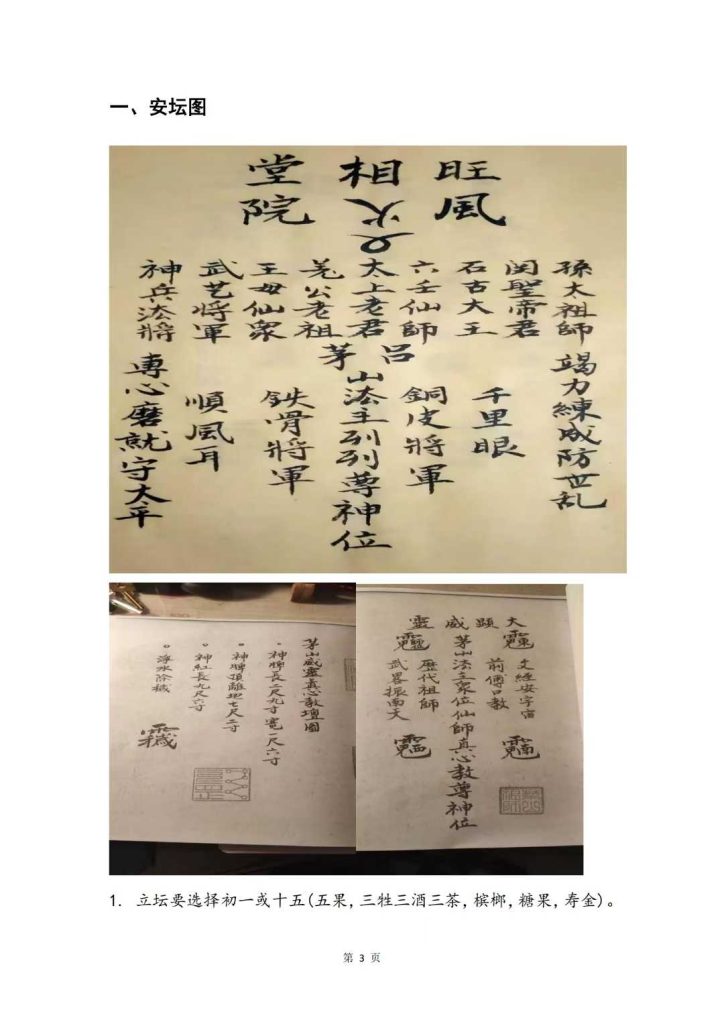 一、安坛图
旺相堂
風火院
孫太祖師
関聖帝君
石古大王
六壬仙師
太上老君
羗公老祖
王母仙眾
武艺將軍
神兵法將
吕茅
竭力練成防世乱
千里眼
銅皮將軍
山法主列列尊神位
鉄骨將軍
順風耳
專心磨就守大平
茅山威靈真心教壇圖
神牌長二尺九寸寬一尺六寸
神牌頂離地七尺二寸
神紅長九尺六寸
淨水除穢
大顕威靈
文經安宇宙
前傳口教
茅山法主眾位仙師真心教尊神位
歷代祖師
武畧振南天
1. 立坛要选择初一或十五(五果,三牲三酒三茶,槟榔,糖果,寿金)。
第 3 页